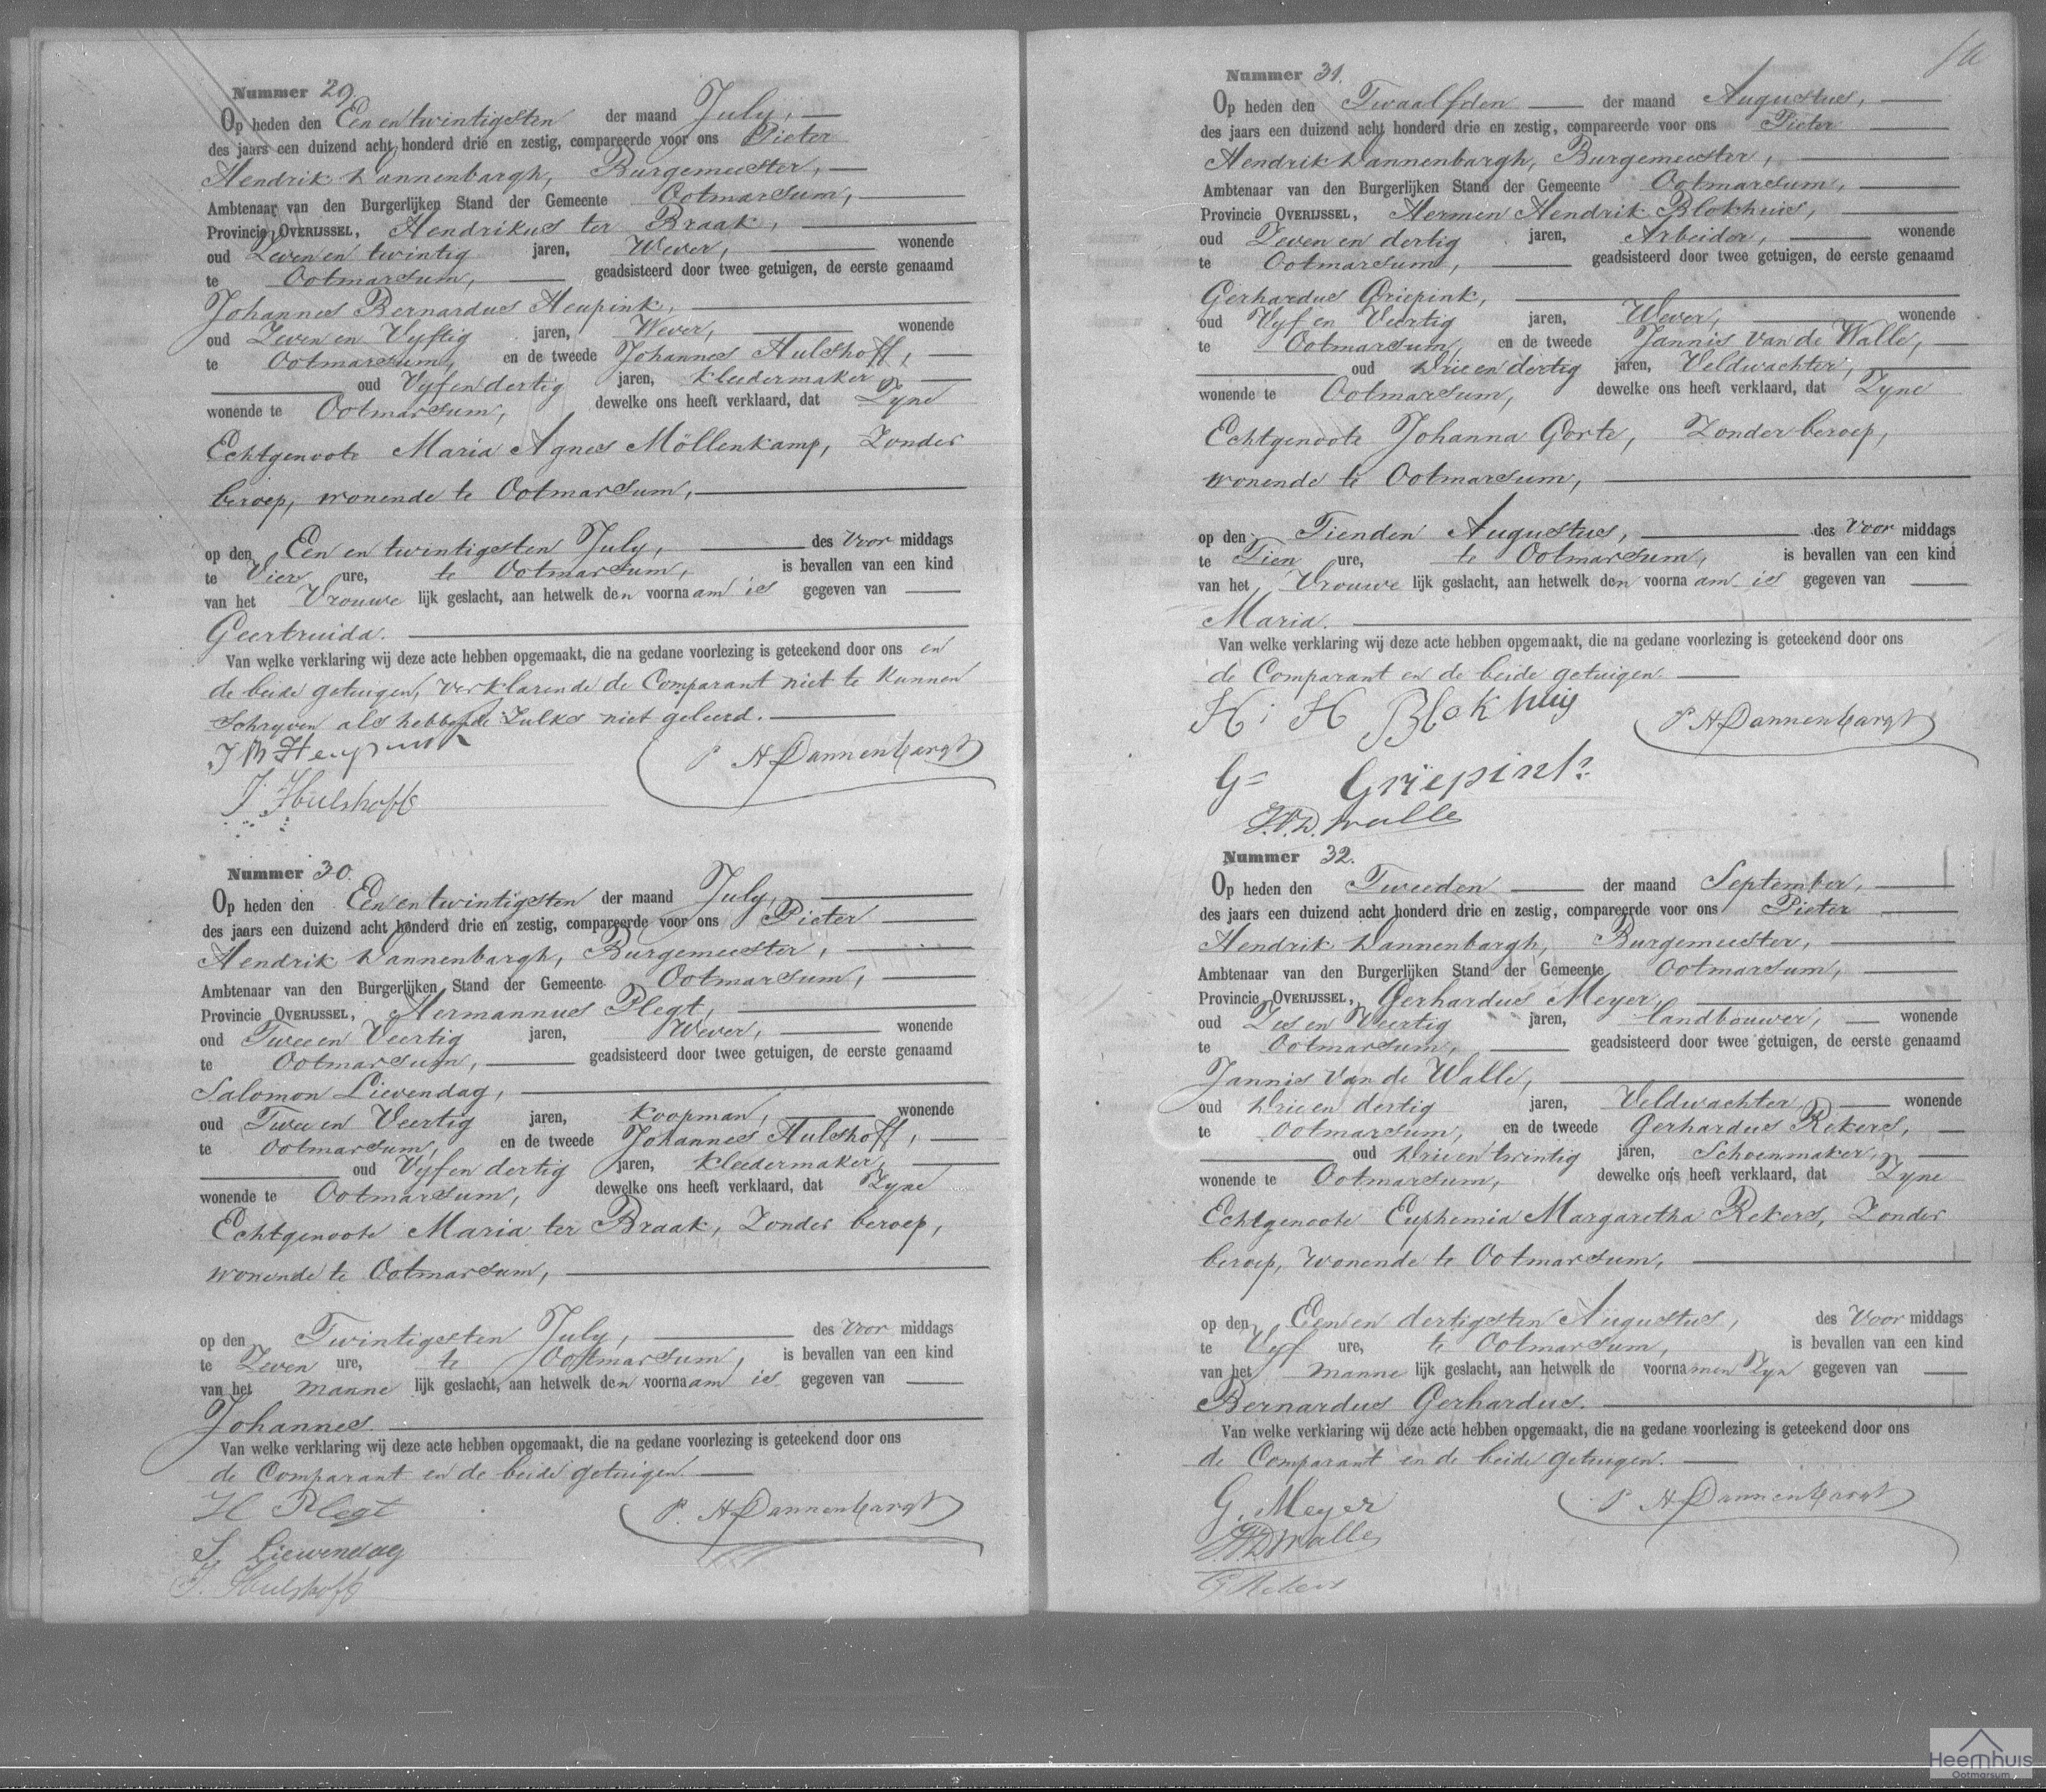 Nummer 29.
Op heden den Een en twintigsten der maand July,
des jaars een duizend acht honderd drie en zestig, compareerde voor ons Pieter
Hendrik Dannenbargh, Burgemeester,
Ambtenaar van den Burgerlijken Stand der Gemeente Ootmarsum,
Provincie OVERIJSSEL, Hendrikus ter Braak,
oud Zeven en twintig jaren, Wever, wonende
te Ootmarsum, geadsisteerd door twee getuigen, de eerste genaamd
Johannes Bernardus Heupink,
oud Zeven en Vyftig jaren, Wever, wonende
te Ootmarsum, en de tweede Johannes Hulshoff,
oud Vyf en dertig jaren, Kleedermaker
wonende te Ootmarsum, dewelke ons heeft verklaard, dat Zyne
Echtgenoote Maria Agnes Möllenkamp, Zonder
beroep, wonende te Ootmarsum,
op den Een en twintigsten July, des Voor middags
te Vier ure, te Ootmarsum, is bevallen van een kind
van het Vrouwe lijk geslacht, aan hetwelk den voornaam is gegeven van
Geertruida.
Van welke verklaring wij deze acte hebben opgemaakt, die na gedane voorlezing is geteekend door ons en
de beide getuigen, verklarende de Comparant niet te kunnen
Schryven als hebbende Zulks niet geleerd.
J B Heupink
P H Dannenbargh
J Hulshoff
Nummer 30.
Op heden den Een en twintigsten der maand July,
des jaars een duizend acht honderd drie en zestig, compareerde voor ons Pieter
Hendrik Dannenbargh, Burgemeester,
Ambtenaar van den Burgerlijken Stand der Gemeente Ootmarsum,
Provincie OVERIJSSEL, Hermannus Plegt,
oud Twee en Veertig jaren, Wever, wonende
te Ootmarsum, geadsisteerd door twee getuigen, de eerste genaamd
Salomon Lievendag,
oud Twee en Veertig jaren, Koopman, wonende
te Ootmarsum, en de tweede Johannes Hulshoff,
oud Vyf en dertig jaren, Kleedermaker,
wonende te Ootmarsum, dewelke ons heeft verklaard, dat Zyne
Echtgenoote Maria ter Braak, Zonder beroep,
wonende te Ootmarsum,
op den Twintigsten July, des Voor middags
te Zeven ure, te Ootmarsum, is bevallen van een kind
van het manne lijk geslacht, aan hetwelk den voornaam is gegeven van
Johannes.
Van welke verklaring wij deze acte hebben opgemaakt, die na gedane voorlezing is geteekend door ons
de Comparant en de beide getuigen.
H Plegt
P. H Dannenbargh
S Liewendag
J. Hulshoff
Nummer 31.
Op heden den Twaalfden der maand Augustus,
des jaars een duizend acht honderd drie en zestig, compareerde voor ons Pieter
Hendrik Dannenbargh, Burgemeester,
Ambtenaar van den Burgerlijken Stand der Gemeente Ootmarsum,
Provincie OVERIJSSEL, Hermen Hendrik Blokhuis,
oud Zeven en dertig jaren, Arbeider, wonende
te Ootmarsum, geadsisteerd door twee getuigen, de eerste genaamd
Gerhardus Griepink,
oud Vyf en Veertig jaren, Wever, wonende
te Ootmarsum, en de tweede Jannis Van de Walle,
oud Drie en dertig jaren, Veldwachter,
wonende te Ootmarsum, dewelke ons heeft verklaard, dat Zyne
Echtgenoote Johanna Gorte, Zonder beroep,
wonende te Ootmarsum,
op den Tienden Augustus, des Voor middags
te Tien ure, te Ootmarsum, is bevallen van een kind
van het Vrouwe lijk geslacht, aan hetwelk den voornaam is gegeven van
Maria.
Van welke verklaring wij deze acte hebben opgemaakt, die na gedane voorlezing is geteekend door ons
de Comparant en de beide getuigen.
H : H Blokhuis
P H Dannenbargh
G= Griepink
J.V.D. Walle
Nummer 32.
Op heden den Tweeden der maand September,
des jaars een duizend acht honderd drie en zestig, compareerde voor ons Pieter
Hendrik Dannenbargh, Burgemeester,
Ambtenaar van den Burgerlijken Stand der Gemeente Ootmarsum,
Provincie OVERIJSSEL, Gerhardus Meyer,
oud Zes en Veertig jaren, Landbouwer, wonende
te Ootmarsum, geadsisteerd door twee getuigen, de eerste genaamd
Jannis Van de Walle,
oud Drie en dertig jaren, Veldwachter, wonende
te Ootmarsum, en de tweede Gerhardus Rekers,
oud Drie en twintig jaren, Schoenmaker,
wonende te Ootmarsum, dewelke ons heeft verklaard, dat Zyne
Echtgenoote Euphemia Margaretha Rekers, Zonder
beroep, Wonende te Ootmarsum,
op den Een en dertigsten Augustus, des Voor middags
te Vyf ure, te Ootmarsum, is bevallen van een kind
van het manne lijk geslacht, aan hetwelk de voornamen Zyn gegeven van
Bernardus Gerhardus.
Van welke verklaring wij deze acte hebben opgemaakt, die na gedane voorlezing is geteekend door ons
de Comparant en de beide getuigen.
G. Meyer
P H Dannenbargh
JVD Walle
G Rekers
Heemhuis
Ootmarsum